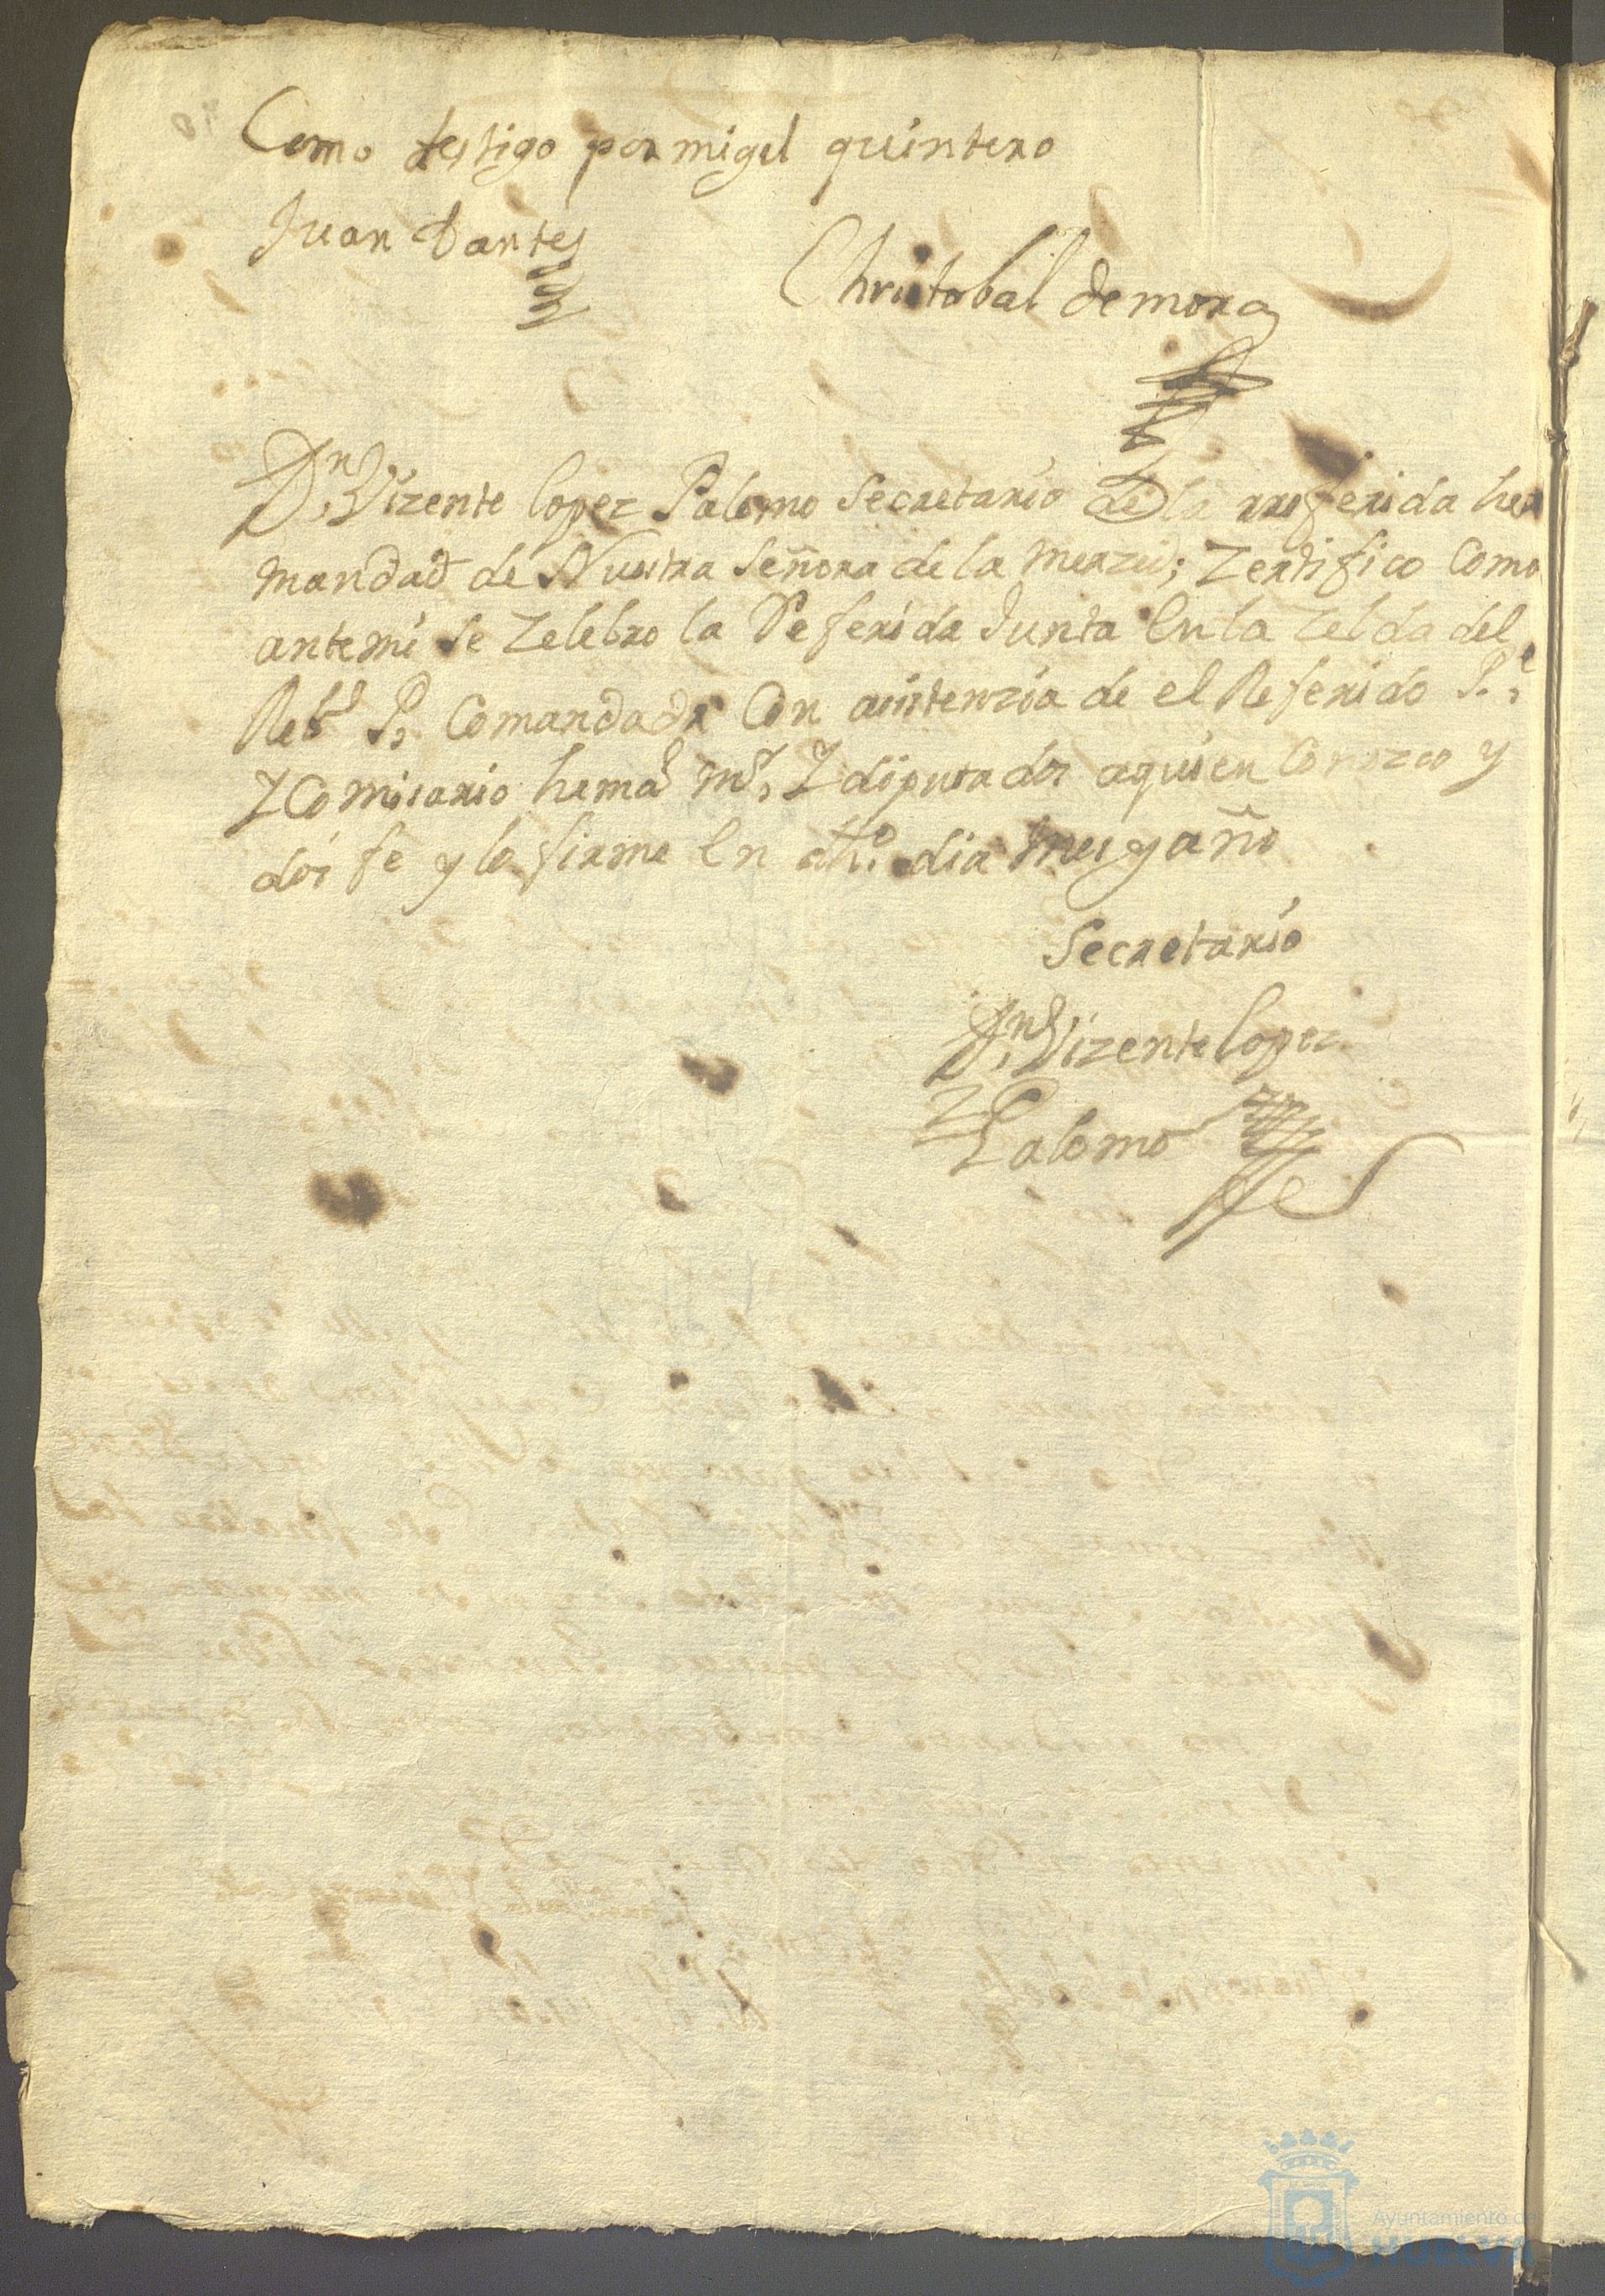 Como testigo por migel quintero
Juan Dantes
Christobal de mora
Dn. Vizente lopez Palomo Secretario de la rreferida her
mandad de Nuestra Señora de la Merzed; Zertifico Como
antemi se Zelebro la Referida Junta en la Zelda del
Rebd P. Comandador Con asistenzia de el Referido Pe.
Y Comisario hermo mr, Y diputados aquien Conozco y
doi fe y lo firme en dho. dia mes y año
Secretario
Dn. Vizente lopez
Y Palomo
Ayuntamiento de
HUELVA